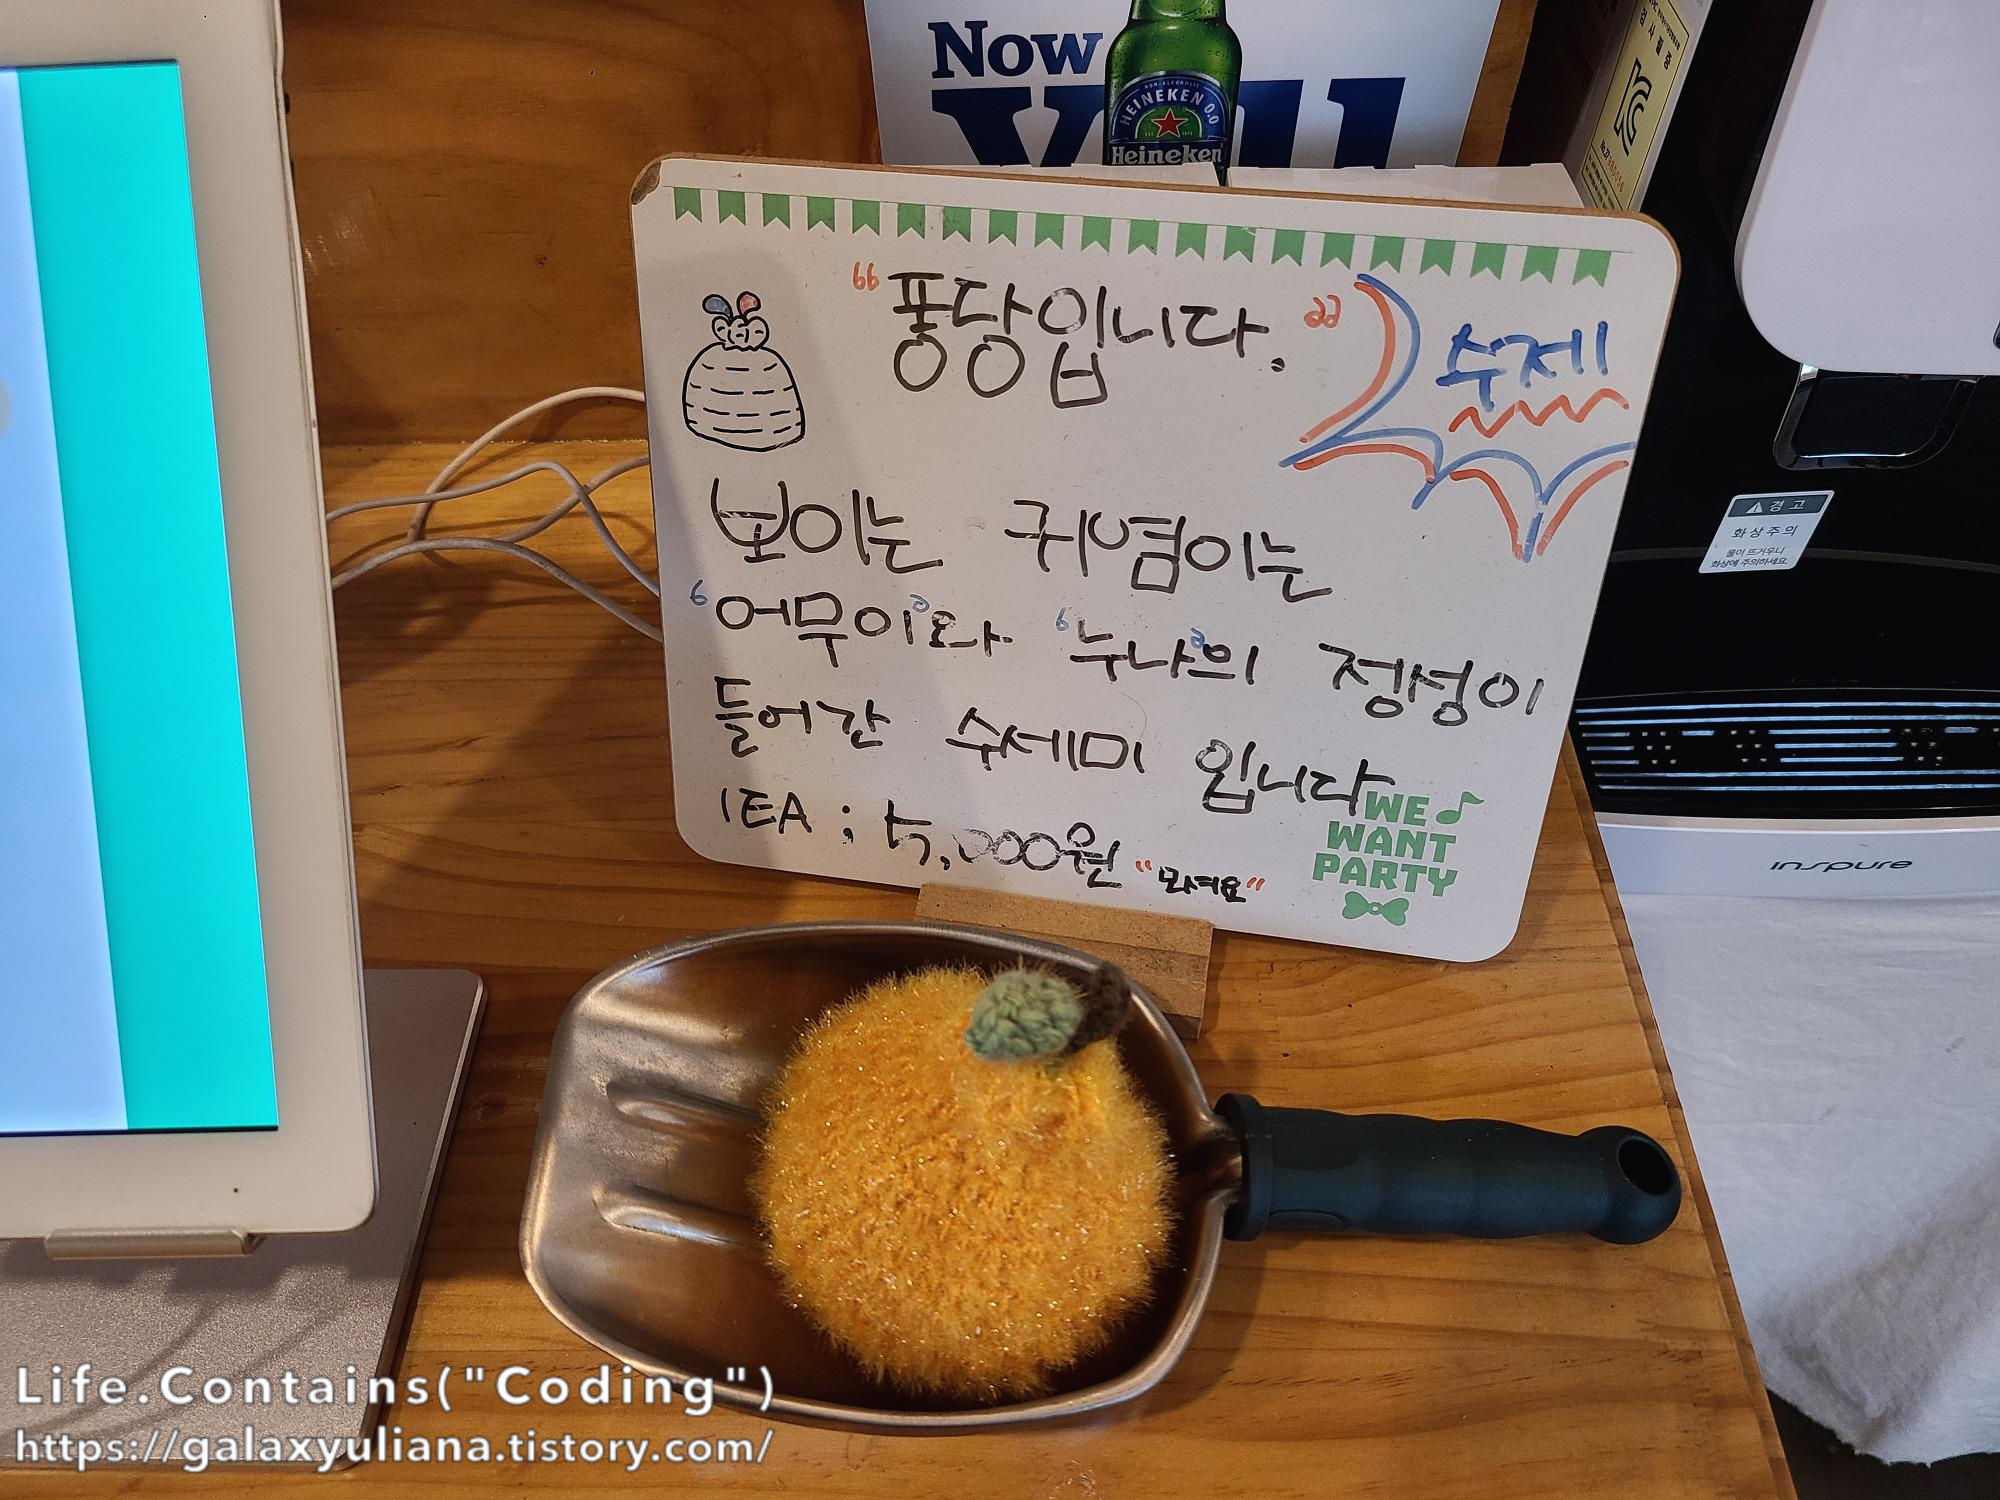 Now
You'll
HEINEKEN 0.0
Heineken
"퐁당입니다."
수제
보이는 귀염이는
'어무이'와 '누나'의 정성이
들어간 수세미 입니다
1EA ; 5,000원
WE
WANT
PARTY
경고
화상주의
물이 뜨거우니
화상에 주의하세요
inspure
Life.Contains("Coding")
https://galaxyuliana.tistory.com/